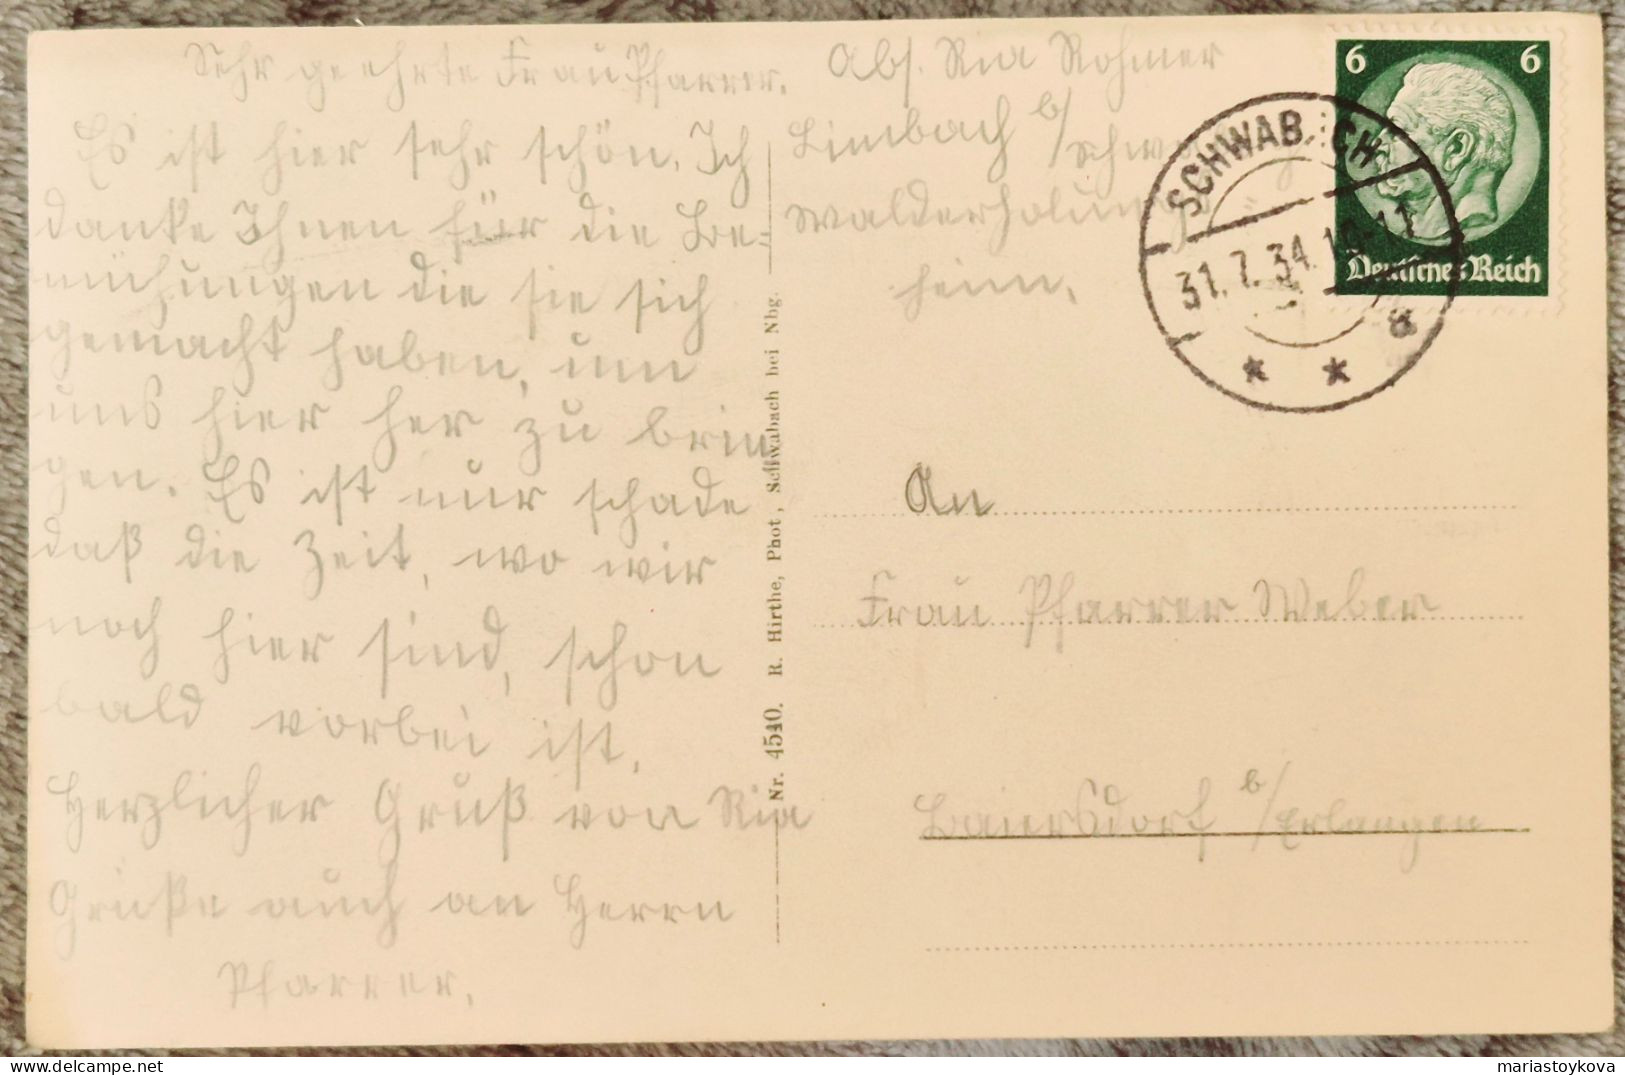 Sehr geehrte Frau Pfarrer.
Es ist hier sehr schön. Ich
danke Ihnen für die Be=
mühungen die sie sich
gemacht haben, um
uns hier her zu brin
gen. Es ist nur schade
daß die Zeit, wo wir
noch hier sind, schon
bald vorbei ist.
Herzlicher Gruß von Ria
Grüße auch an Herrn
Pfarrer.
Nr. 4540. R. Hirthe, Phot, Schwabach bei Nbg.
Abs. Ria Rohmer
Limbach b/
Walderholungs
heim.
6 6
Deutsches Reich
SCHWABACH
31.7.34.
a
* *
An
Frau Pfarrer Weber
Baiersdorf b/Erlangen
mariastoykova